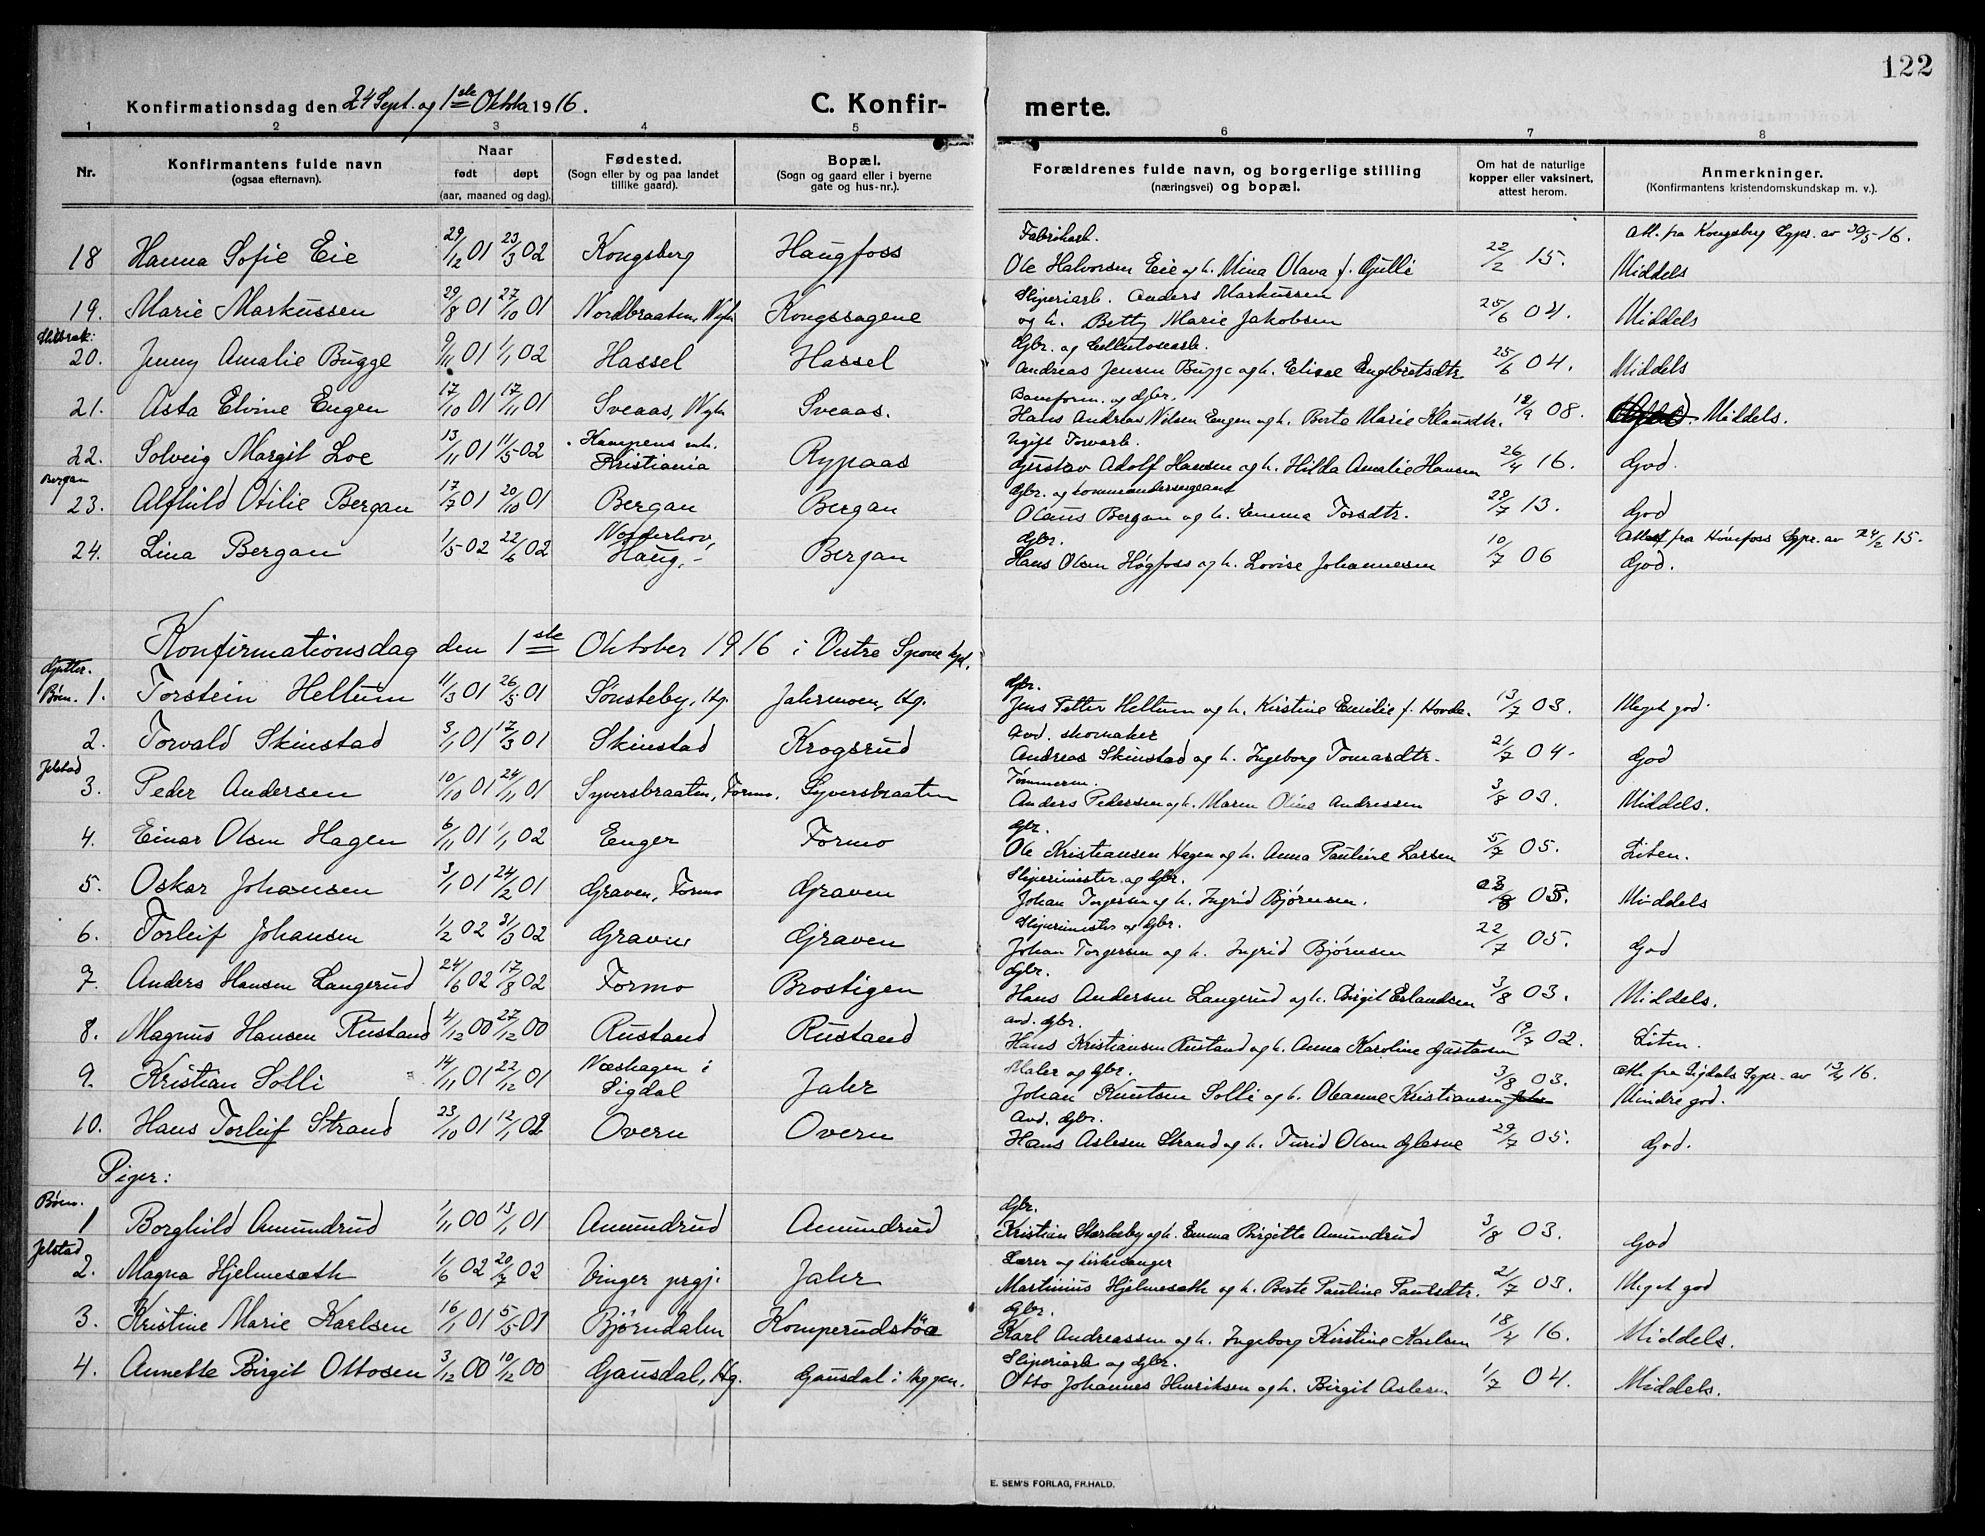 122
Konfirmationsdag den 24 Sept. og 1ste Oktbr 1916.
C. Konfirmerte.
1 2 3 4 5 6 7 8
Nr.
Konfirmantens fulde navn (ogsaa efternavn).
Naar født døpt (aar, maaned og dag).
Fødested. (Sogn eller by og paa landet tillike gaard).
Bopæl. (Sogn og gaard eller i byerne gate og hus-nr.).
Forældrenes fulde navn, og borgerlige stilling (næringsvei) og bopæl.
Om hat de naturlige kopper eller vaksinert, attest herom.
Anmerkninger. (Konfirmantens kristendomskundskap m. v.).
18 Hanna Sofie Eie 29/12 01 23/3 02 Kongsberg Haugfoss Fabrikarb. Ole Halvorsen Eie og h. Mina Olava f. Gulli 22/2 15. Att. fra Kongsberg Sgpr. av 30/5-16. Middels
19. Marie Markussen 29/8 01 27/10 01 Nordbraaten, Kongssagene Sliperiarb. Anders Markussen og h. Betty Marie Jakobsen 25/6 04. Middels
20. Jenny Amalie Bugge 9/11 01 1/1 02 Hassel Hassel Gbr. og Cellulosearb. Andreas Jensen Bugge og h. Elise Engebretsdtr. 25/6 04. Middels
21. Asta Elvine Engen 17/10 01 17/11 01 Sveaas, Sveaas. Baneform. og Gbr. Hans Andreas Nilsen Engen og h. Berte Marie Hansdtr. 12/9 08. Middels.
22. Solveig Margit Loe 13/11 01 11/5 02 Kampens mh. Kristiania Rypaas Ugift Gustav Adolf Hansen og h. Hilda Amalie Hansen 26/4 16. God.
Bergan
23. Alfhild Otilie Bergan 17/7 01 20/10 01 Bergan Bergan Gbr. og kommandersergeant Olaus Bergan og h. Emma Torsdtr. 29/7 13. God
24. Lina Bergan 1/5 02 22/6 02 Norderhov, Haug,- Bergan Gbr. Hans Olsen Høgfoss og h. Lovise Johannesen 10/7 06 Attest fra Hønefoss Sgpr. av 24/2 15. God.
Konfirmationsdag den 1ste Oktober 1916 i Vestre Spone kpl.
Gutter.
Bøen. 1. Torstein Heltum 11/3 01 26/5 01 Sønsteby, Hg. Jahrmoen, Hg. Gbr. Jens Petter Heltum og h. Kirstine Emilie f. Hovde. 13/7 03. Meget god.
2. Torvald Skinstad 3/1 01 17/3 01 Skinstad Krogsrud Avd. skomaker Andreas Skinstad og h. Ingeborg Tomasdtr. 21/7 04. God
Jelstad
3. Peder Andersen 10/10 01 24/11 01 Syversbraaten, Formo. Syversbraaten Tømmerm. Anders Pedersen og h. Maren Oline Andressen 3/8 03. Middels.
4. Einar Olsen Hagen 6/11 01 1/1 02 Enger Formo Gbr. Ole Kristiansen Hagen og h. Anna Pauline Larsen 5/7 05. Liten.
5. Oskar Johansen 3/1 01 24/2 01 Graven, Formo Graven Sliperimester og Gbr. Johan Torgersen og h. Ingrid Bjørnsen. 3/8 03. Middels
6. Torleif Johansen 1/2 02 31/3 02 Graven Graven Sliperimester og Gbr. Johan Torgersen og h. Ingrid Bjørnsen 22/7 05. God
7. Anders Hansen Langerud 24/6 02 17/8 02 Formo Brostigen Gbr. Hans Andersen Langerud og h. Birgit Erlandsen 3/8 03. Middels.
8. Magnus Hansen Rustand 4/12 00 27/12 00 Rustand Rustand avd. Gbr. Hans Kristiansen Rustand og h. Anna Karoline Gustavsen 19/7 02. Liten.
9. Kristian Solli 14/11 01 22/12 01 Næshagen i Sigdal Jahr Maler og Gbr. Johan Knutsen Solli og h. Oleanne Kristiansen 3/8 03. Att. fra Sigdals Sgpr. av 13/4 16. Mindre god.
10. Hans Torleif Strand 23/10 01 12/1 02 Overn Overn Avd. Gbr. Hans Aslesen Strand og h. Turid Olsen Glesne 29/7 05. God.
Piger:
Bøen.
1 Borghild Amundrud 1/11 00 13/1 01 Amundrud Amundrud Gbr. Kristian Størkeby og h. Emma Birgitte Amundrud 3/8 03. God
Jelstad
2. Magna Hjelmesæth 1/6 02 20/7 02 Vinger prgj. Jahr Lærer og kirkesanger Martinius Hjelmesæth og h. Berte Pauline Paulsdtr. 2/7 03. Meget god
3. Kristine Marie Karlsen 16/1 01 5/5 01 Bjørndalen Komperudstøa Gbr. Karl Andreassen og h. Ingeborg Kirstine Karlsen 18/4 16. Middels.
4. Annetta Birgit Ottosen 3/12 00 10/12 00 Gausdal, Hg. Gausdal i Høggen. Sliperiarb og Gbr. Otto Johannes Henriksen og h. Birgit Aslesen 1/7 04. Middels.
E. SEM'S FORLAG, FR.HALD.